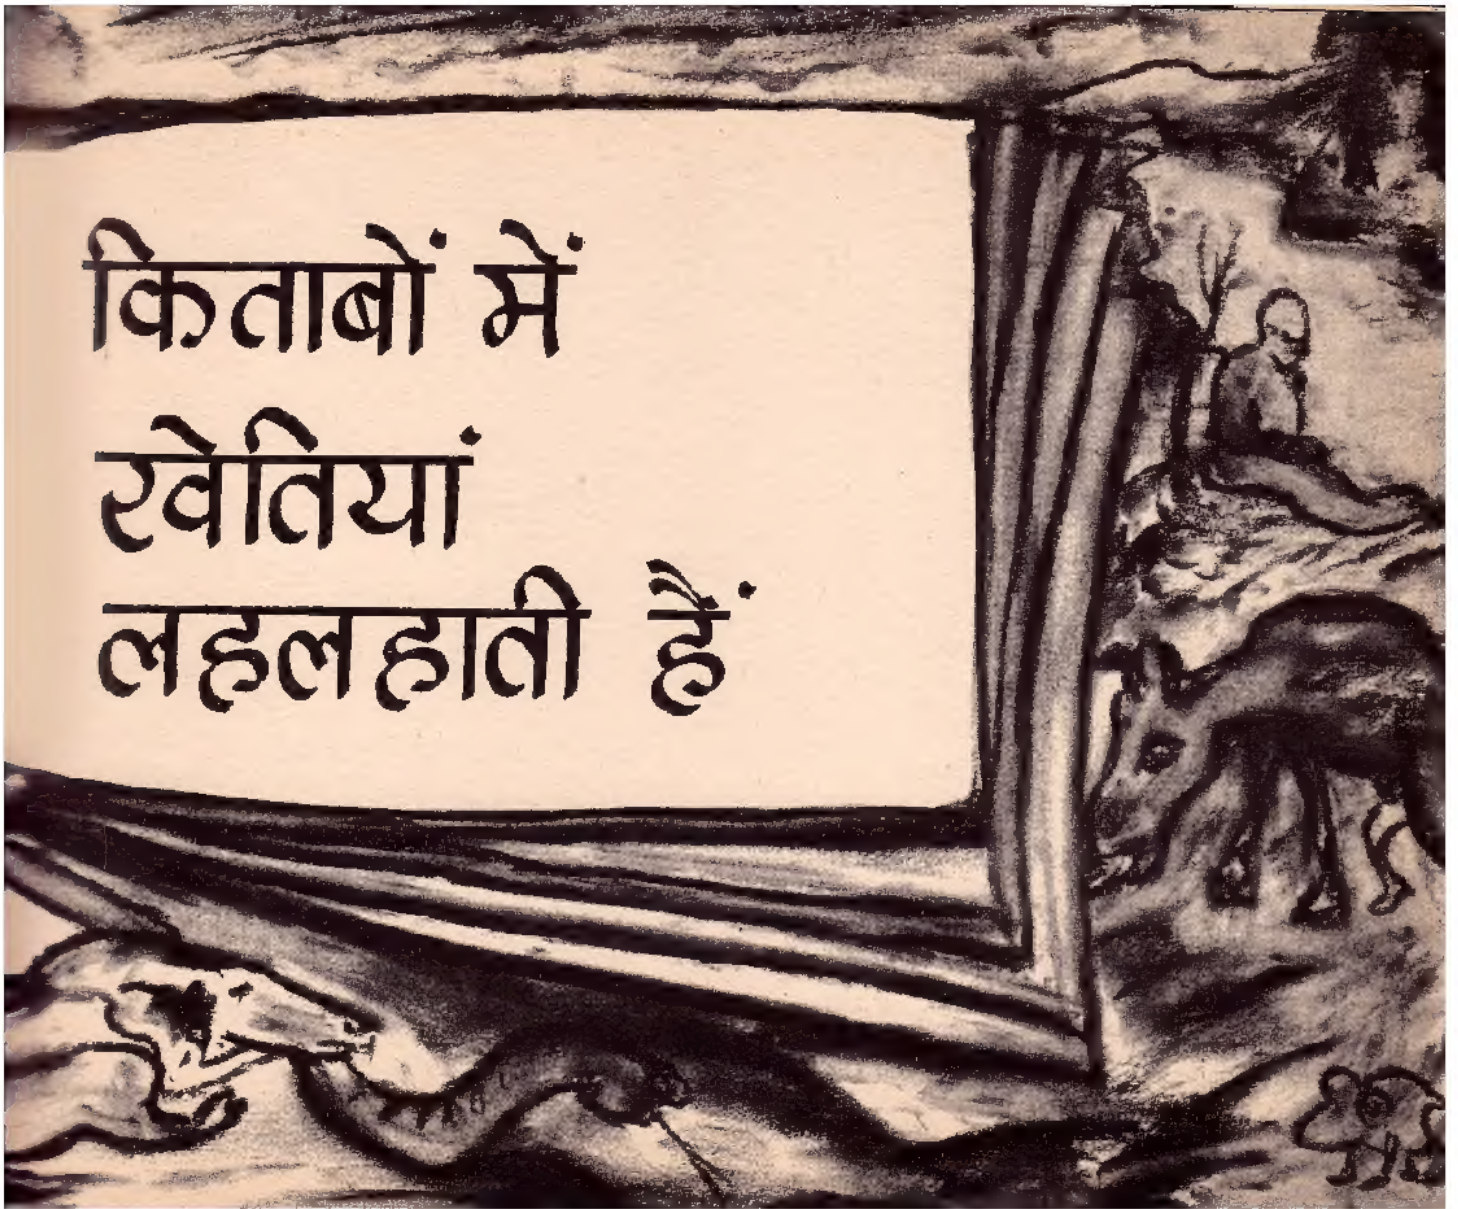 किताबों में
खेतियां
लहलहाती हैं